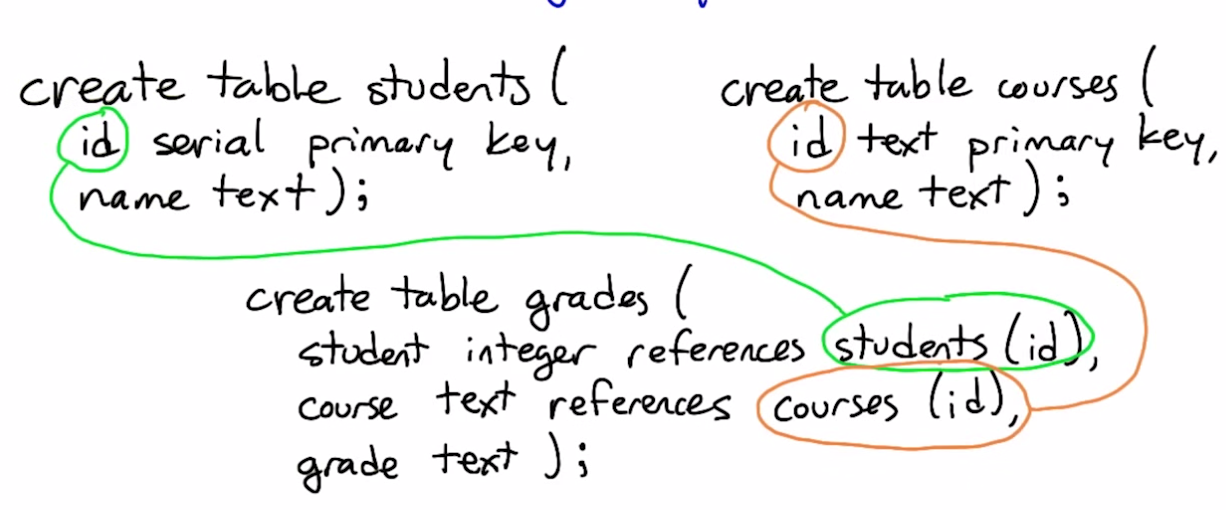 create table students (
id serial primary key,
name text);
create table courses (
id text primary key,
name text);
create table grades (
student integer references students (id),
course text references courses (id),
grade text );